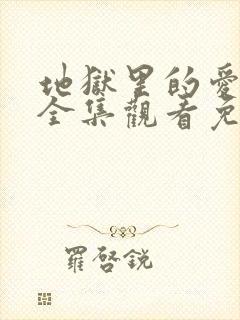 地獄里的愛
全集觀看免
羅啓銳